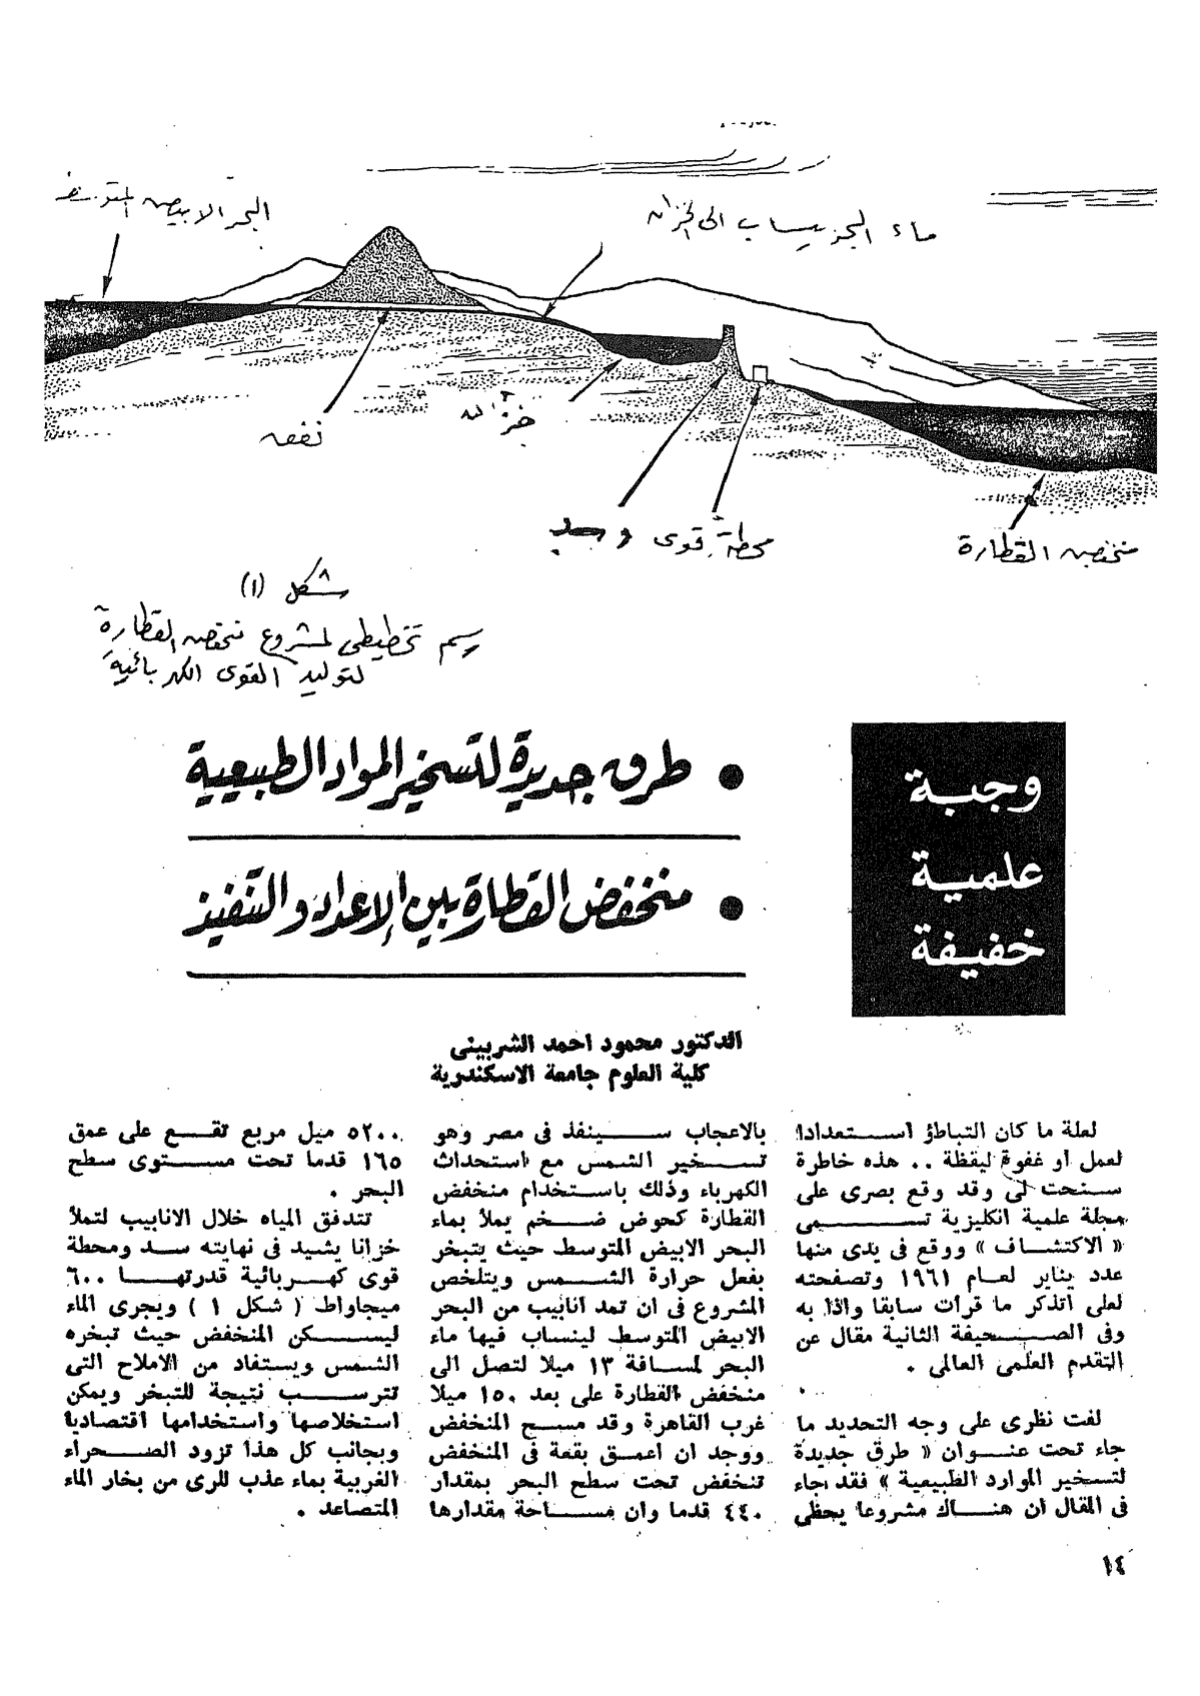 البحر الابيض المتوسط
ماء البحر ينساب الى الخزان
نفق
خزان
محطة قوى وسد
منخفض القطارة
شكل (١)
رسم تخطيطى لمشروع منخفض القطارة
لتوليد القوى الكهربائية
وجبة
علمية
خفيفة
• طرق جديدة لتسخير المواد الطبيعية
• منخفض القطارة بين الإعداد والتنفيذ
الدكتور محمود احمد الشربينى
كلية العلوم جامعة الاسكندرية
لعلة ما كان التباطؤ استعدادا
لعمل او غفوة ليقظة .. هذه خاطرة
سنحت لى وقد وقع بصرى على
مجلة علمية انكليزية تسمى
« الاكتشاف » ووقع فى يدى منها
عدد يناير لعام ١٩٦١ وتصفحته
لعلى اتذكر ما قرات سابقا واذا به
وفى الصحيفة الثانية مقال عن
التقدم العلمى العالمى .
لفت نظرى على وجه التحديد ما
جاء تحت عنوان « طرق جديدة
لتسخير الموارد الطبيعية » فقد جاء
فى المقال ان هناك مشروعا يحظى
بالاعجاب سينفذ فى مصر وهو
تسخير الشمس مع استحداث
الكهرباء وذلك باستخدام منخفض
القطارة كحوض ضخم يملأ بماء
البحر الابيض المتوسط حيث يتبخر
بفعل حرارة الشمس ويتلخص
المشروع فى ان تمد انابيب من البحر
الابيض المتوسط لينساب فيها ماء
البحر لمسافة ١٣ ميلا لتصل الى
منخفض القطارة على بعد ١٥٠ ميلا
غرب القاهرة وقد مسح المنخفض
ووجد ان اعمق بقعة فى المنخفض
تنخفض تحت سطح البحر بمقدار
٤٤٠ قدما وان مساحة مقدارها
٥٢٠٠ ميل مربع تقع على عمق
١٦٥ قدما تحت مستوى سطح
البحر .
تتدفق المياه خلال الانابيب لتملأ
خزانا يشيد فى نهايته سد ومحطة
قوى كهربائية قدرتها ٦٠٠
ميجاواط ( شكل ١ ) ويجرى الماء
ليسكن المنخفض حيث تبخره
الشمس ويستفاد من الاملاح التى
تترسب نتيجة للتبخر ويمكن
استخلاصها واستخدامها اقتصاديا
وبجانب كل هذا تزود الصحراء
الغربية بماء عذب للرى من بخار الماء
المتصاعد .
١٤